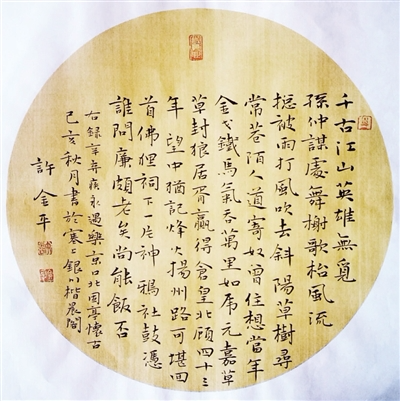 千古江山英雄無覓
孫仲謀處舞榭歌枱風流
捴被雨打風吹去斜陽草樹尋
常巷陌人道寄奴曾住想當年
金戈鐵馬氣吞萬里如虎元嘉草
草封狼居胥贏得倉皇北顧四十三
年望中猶記烽火揚州路可堪回
首佛狸祠下一片神鴉社鼓憑
誰問廉頗老矣尚能飯否
右録辛弃疾永遇樂京口北固亭懷古
己亥秋月書於塞上銀川楷晨閣
許金平